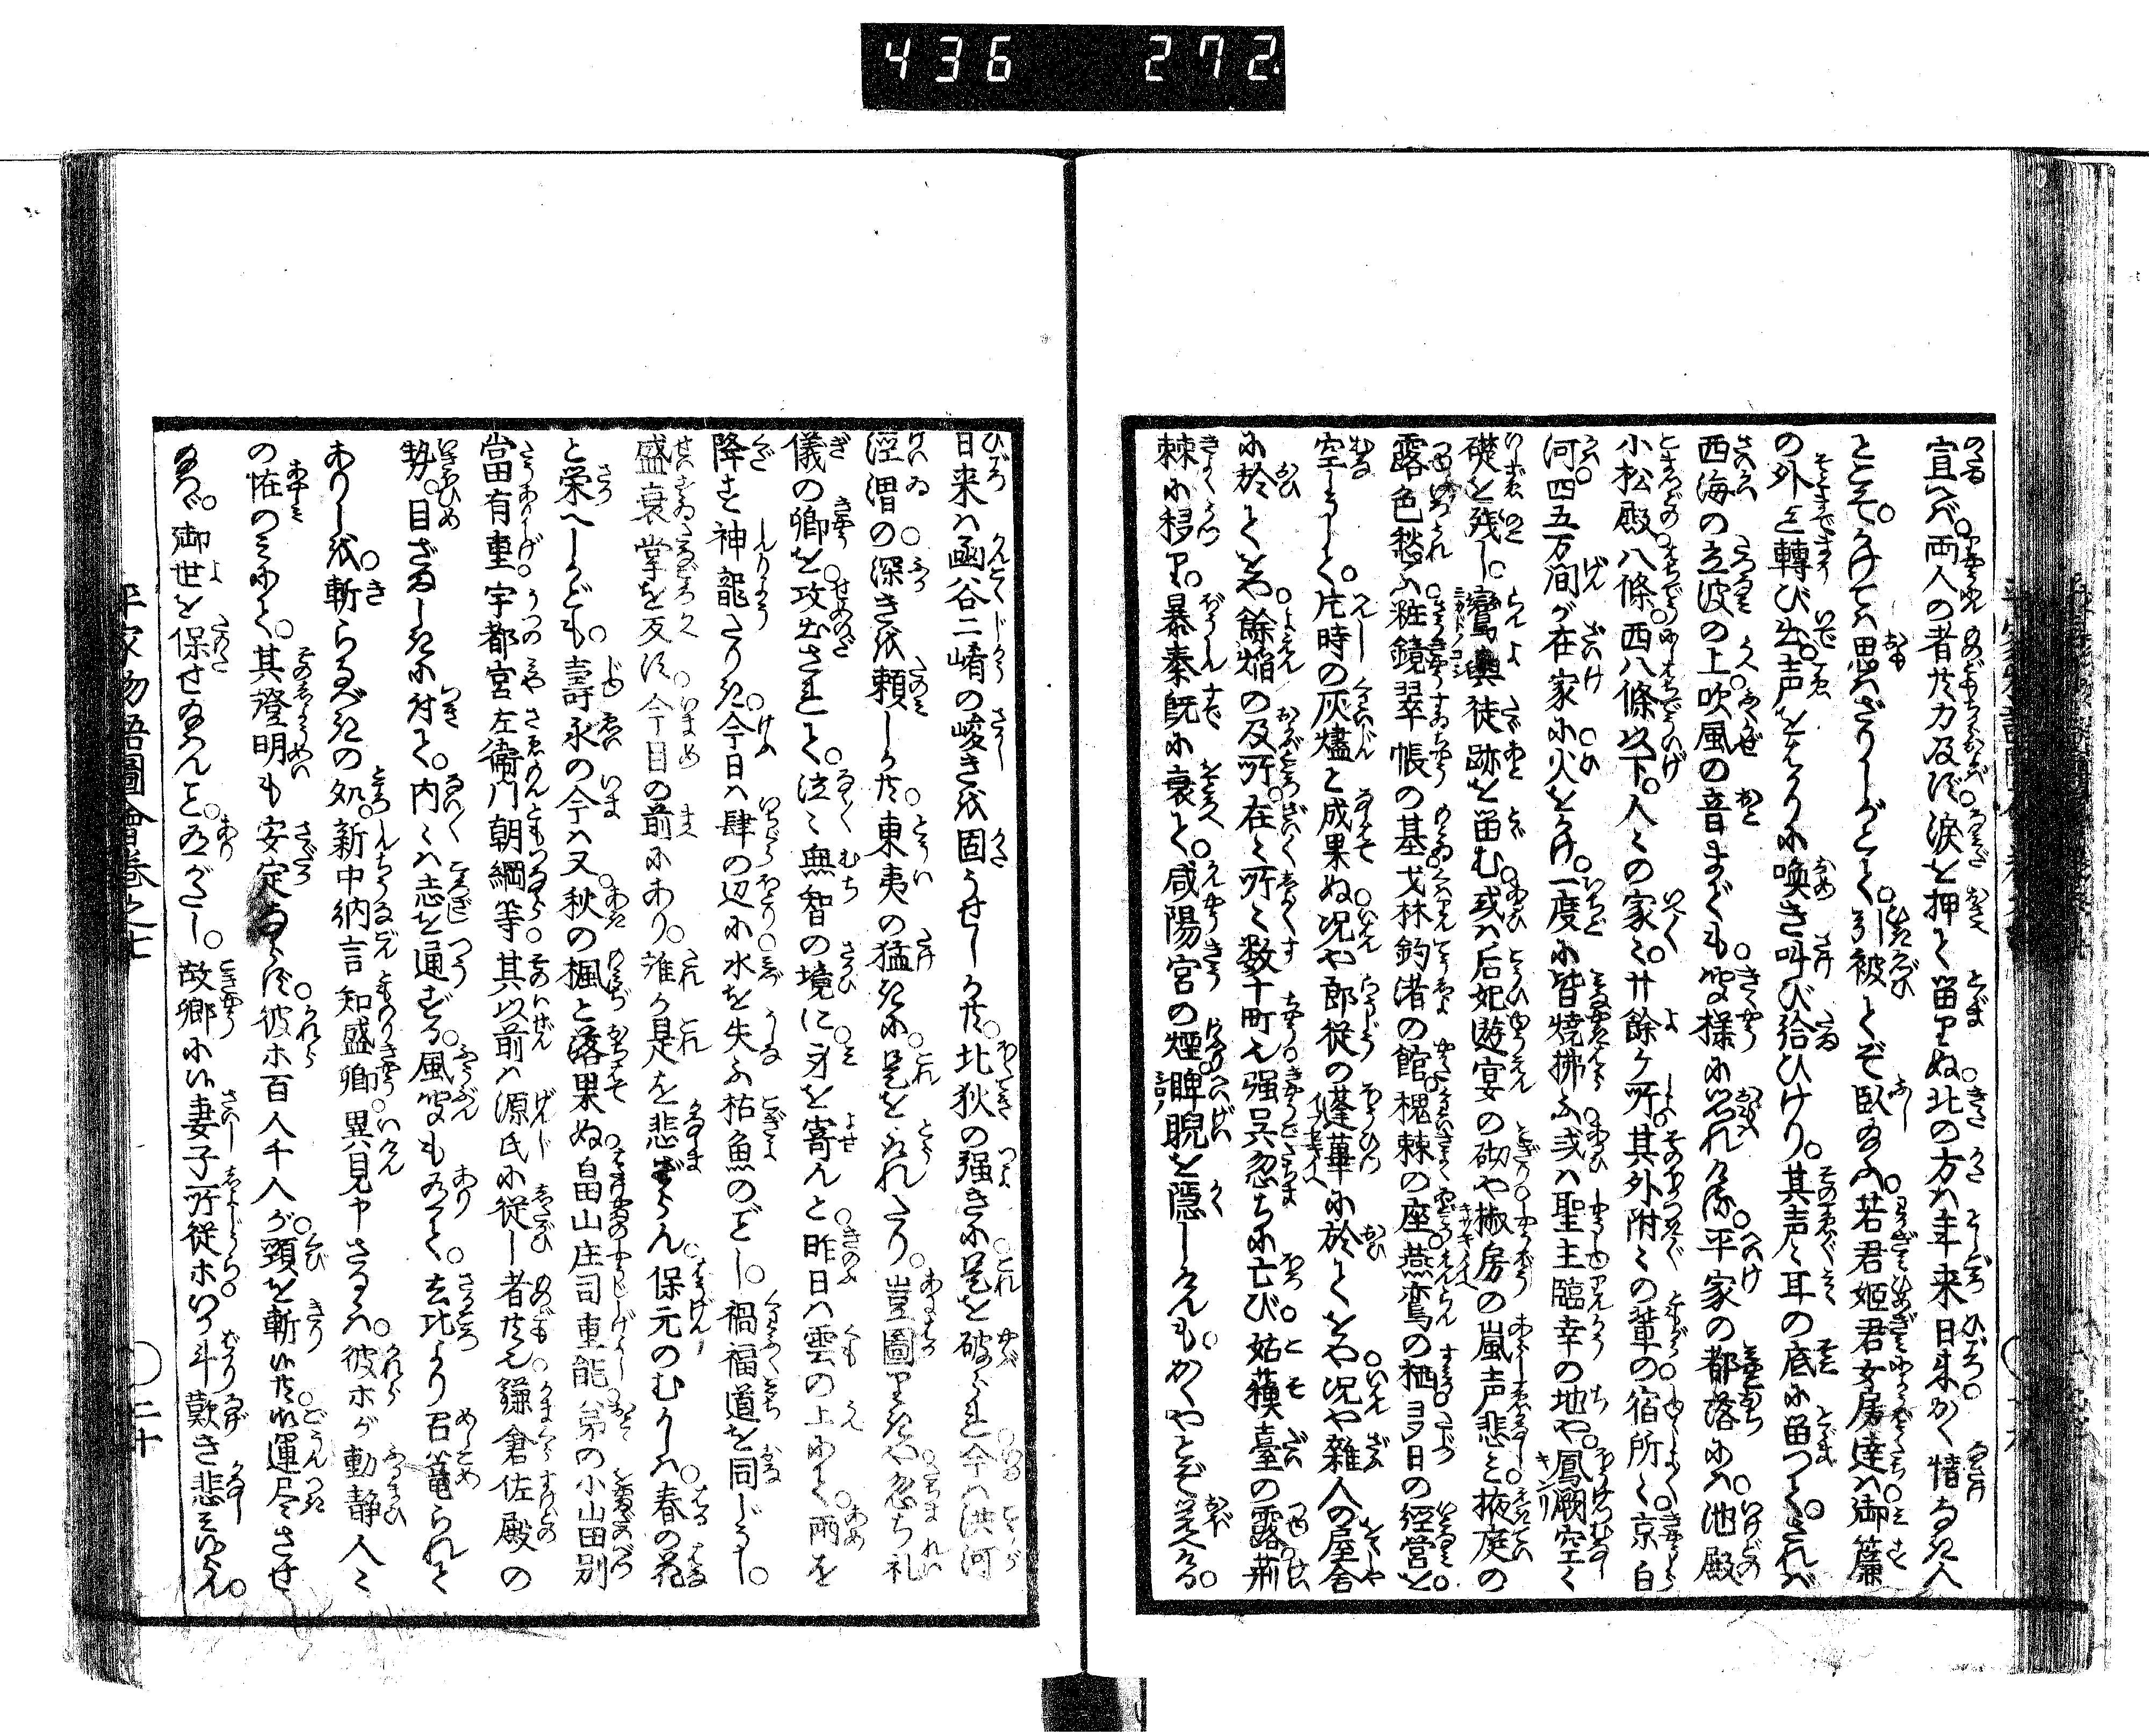 436 272.
宣へば。両人の者共力及ばず涙を押へて留りぬ北の方は年来日来かく情なき人
とこそ。かけては思はざりしがとて。引被きてぞ臥給ふ。若君姫君女房達は御簾
の外迄轉び出。声をはかりに喚き叫び給ひけり。其声々耳の底に留つて。されば
西海の立波の上吹風の音までも聞様に思れける。平家の都落には。池殿
小松殿。八條西八條以下。人々の家々。廿餘ケ所。其外附々の輩の宿所々々京白
河四五万間が在家に火をかけ。一度に皆焼拂ふ或は聖主臨幸の地や。鳳闕空く
礎を残し。鸞輿徒跡を留む。或は后妃遊宴の砌や椒房の嵐声悲と。掖庭の
露色愁ふ粧鏡翠帳の基戈林釣渚の館。槐棘の座。燕鸞の栖。多日の経営を
空うして。片時の灰燼と成果ぬ。况や郎従の蓬蓽に於てをや。况や雑人の屋舎
に於てをや餘焔の及所。在々所々数十町也。强呉忽ちに亡び。姑蘇臺の露荊
棘に移り。暴秦既に衰て。咸陽宮の煙睥睨を隠しけんも。かくやとぞ覚へける。
日来は函谷二崤の峻きを固うせしか共。北狄の强きに是を破られ。今は洪河
涇渭の深きを頼しか共。東夷の猛きに。是をとられたり。豈圖りきや忽ち礼
儀の郷を攻出されて。泣々無智の境に。身を寄んと昨日は雲の上にて。雨を
降す神龍たりき。今日は肆の辺に水を失ふ枯魚のごとし。禍福道を同じうし。
盛衰掌を反す。今目の前にあり。誰か是を悲まざらん。保元のむかしは。春の花
と栄へしかども。壽永の今は又。秋の楓と落果ぬ。畠山庄司重能。弟の小山田別
當有重。宇都宮左衛門朝綱等。其以前は源氏に従し者共也。鎌倉佐殿の
勢。目ざましきに付て。内々は志を通ずる。風聞もありて。去比より召篭られて
ありしを。斬らるべきの処。新中納言知盛卿。異見申さるゝは。彼ホが動静人々
の怪のみにて。其證明も安定ならず。彼ホ百人千人が。頸を斬せ共。御運尽させ
給なば。御世を保せ給はんこと。有がたし。故郷に候妻子所従ホいか斗歎き悲み候はん。
平家物語圖會巻之七
二十